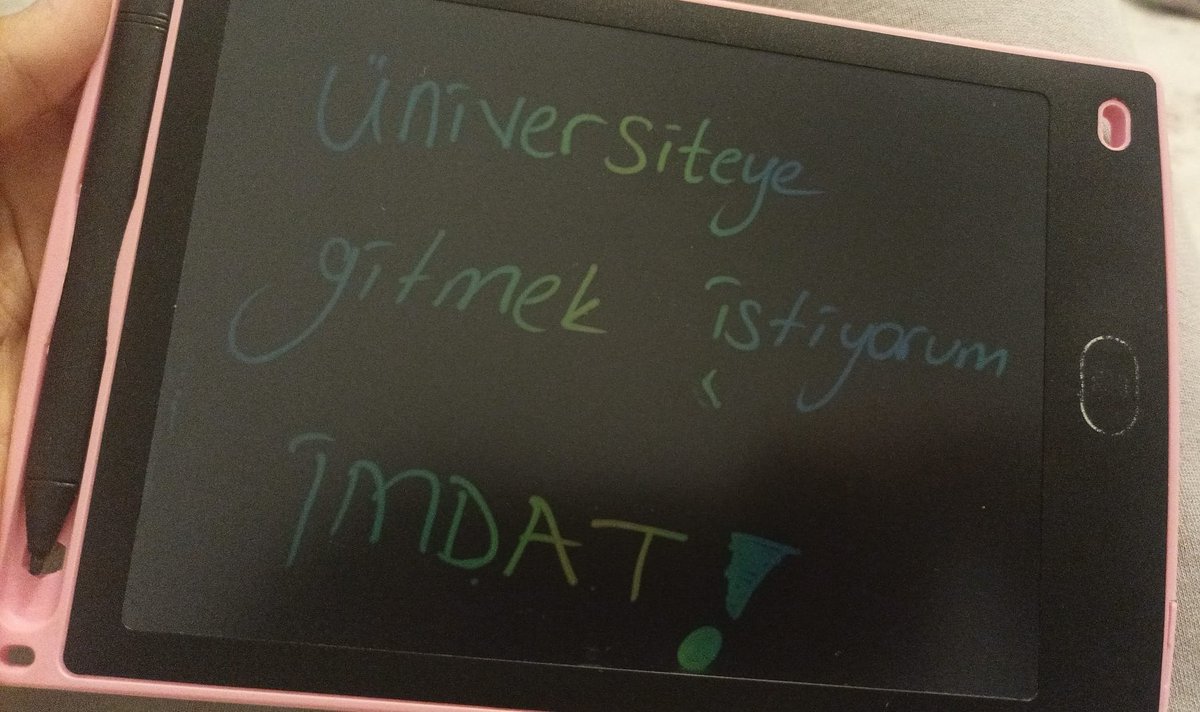 Üniversiteye
gitmek istiyorum
İMDAT!